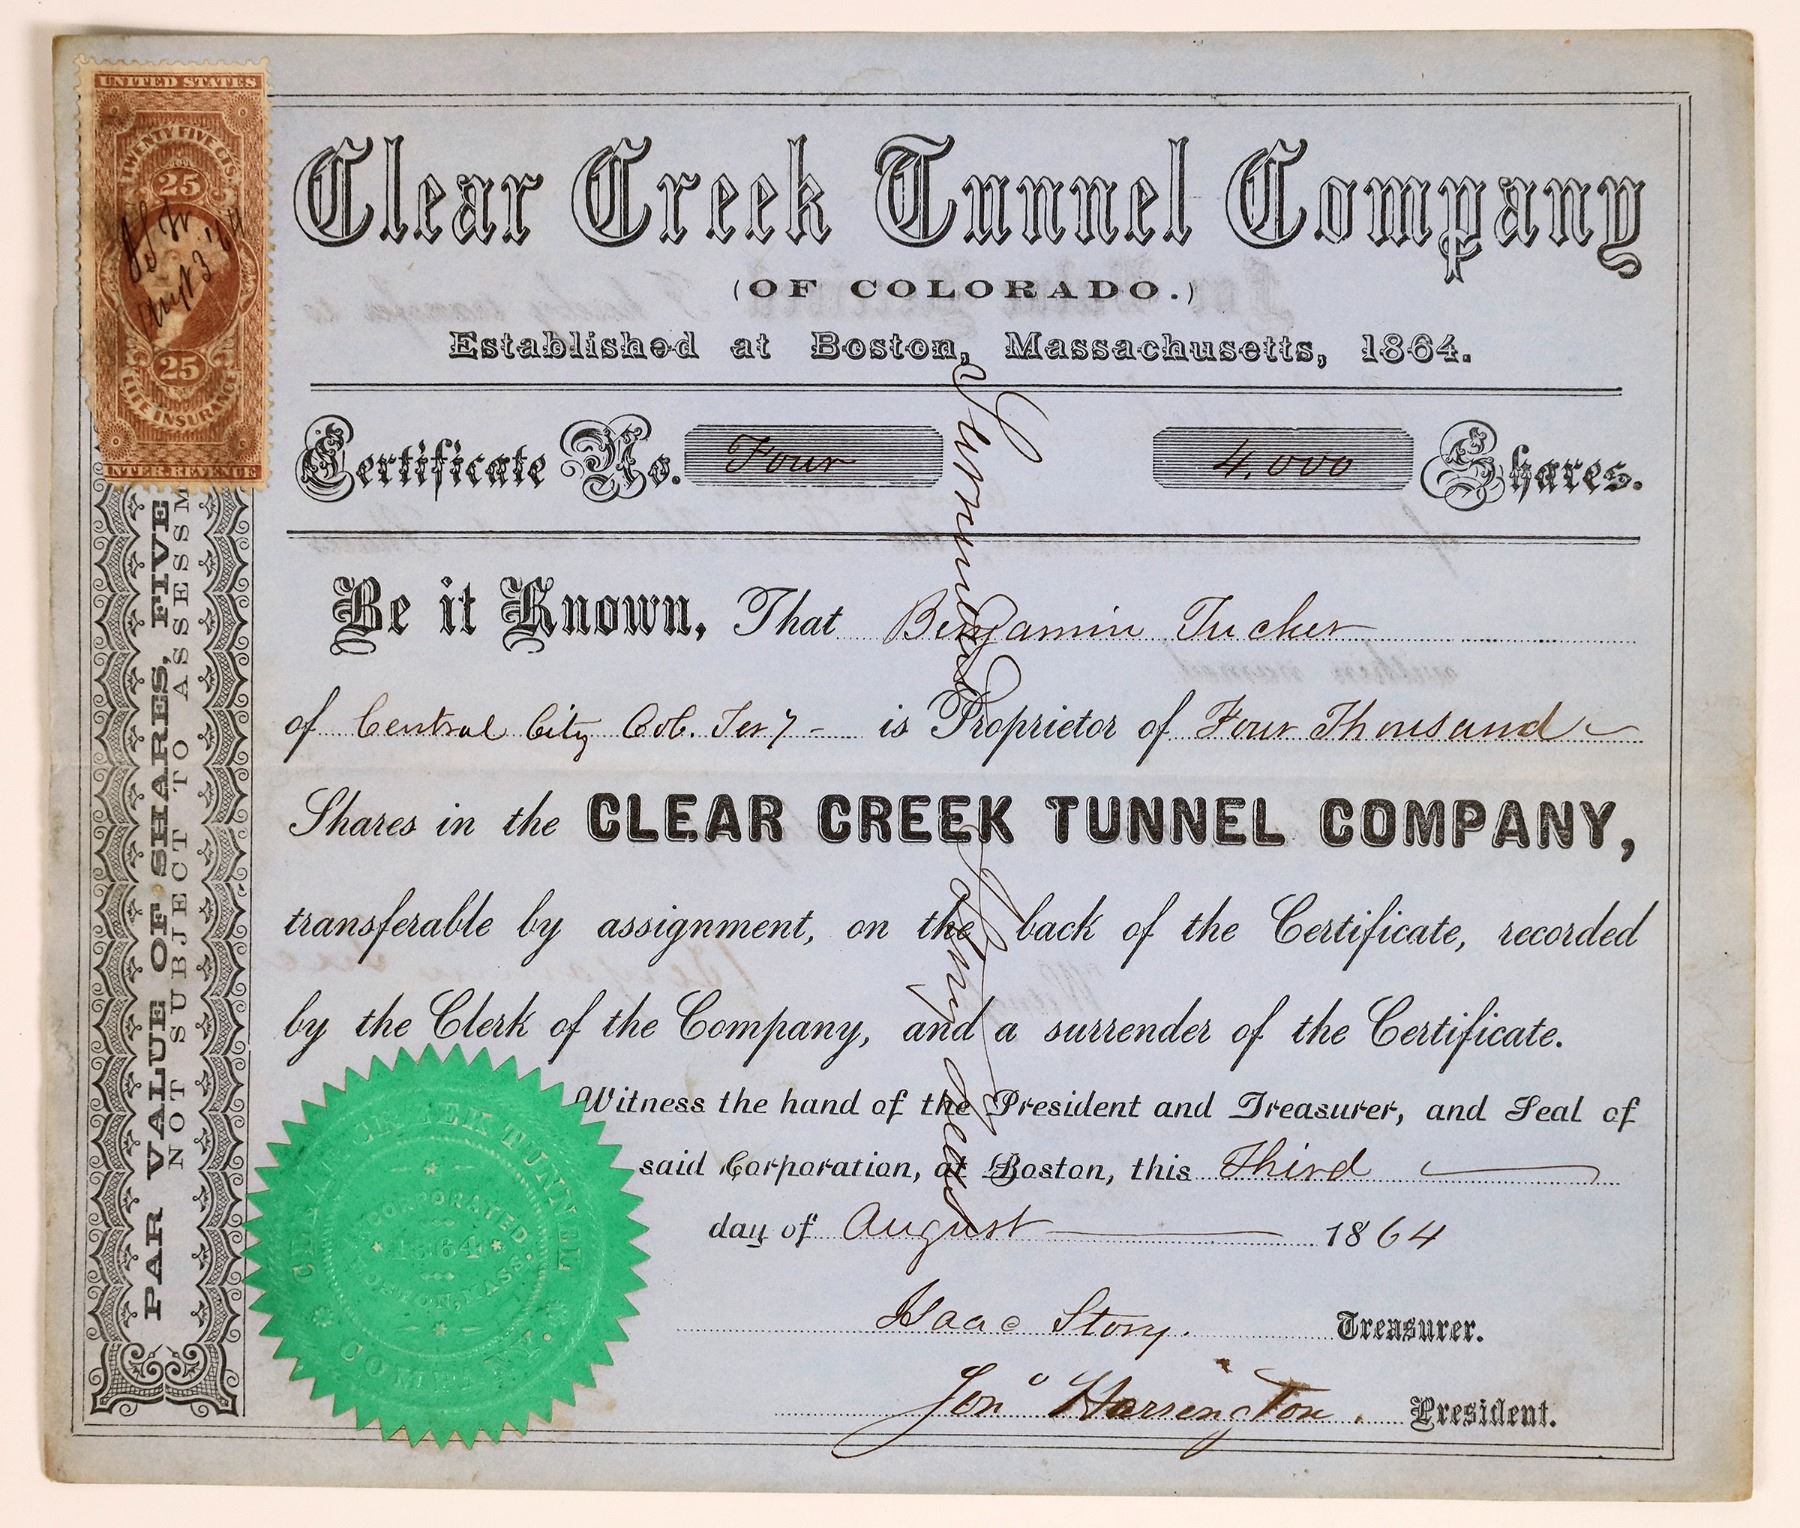 UNITED STATES
TWENTY FIVE CTS.
25
Aug 3 '64
25
LIFE INSURANCE
INTER. REVENUE
Clear Creek Tunnel Company
(OF COLORADO.)
Established at Boston, Massachusetts, 1864.
Certificate No. Four 4,000 Shares.
Be it Known, That Benjamin Tucker
of Central City Col. Ter y is Proprietor of Four Thousand
Shares in the CLEAR CREEK TUNNEL COMPANY,
transferable by assignment, on the back of the Certificate, recorded
by the Clerk of the Company, and a surrender of the Certificate.
Witness the hand of the President and Treasurer, and Seal of
said Corporation, at Boston, this Third
day of August 1864
Isaac Story. Treasurer.
Jonº Harrington. President.
PAR VALUE OF SHARES, FIVE
NOT SUBJECT TO ASSESSM
CLEAR CREEK TUNNEL
COMPANY.
INCORPORATED
1864
BOSTON, MASS.